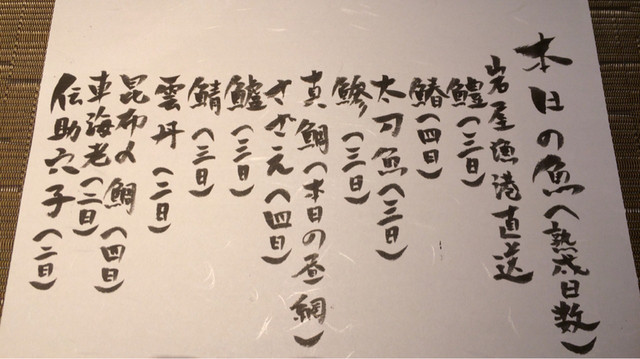 本日の魚(熟成日数)
岩屋漁港直送
鱧(三日)
鰆(四日)
太刀魚(三日)
鯵(三日)
真鯛(本日の昼網)
さざえ(四日)
鱸(三日)
鯖(三日)
雲丹(二日)
昆布〆鯛(四日)
車海老(二日)
伝助穴子(二日)